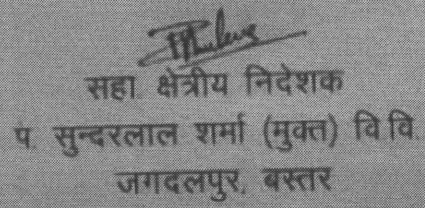 सहा. क्षेत्रीय निदेशक
प. सुन्दरलाल शर्मा (मुक्त) वि.वि.
जगदलपुर, बस्तर